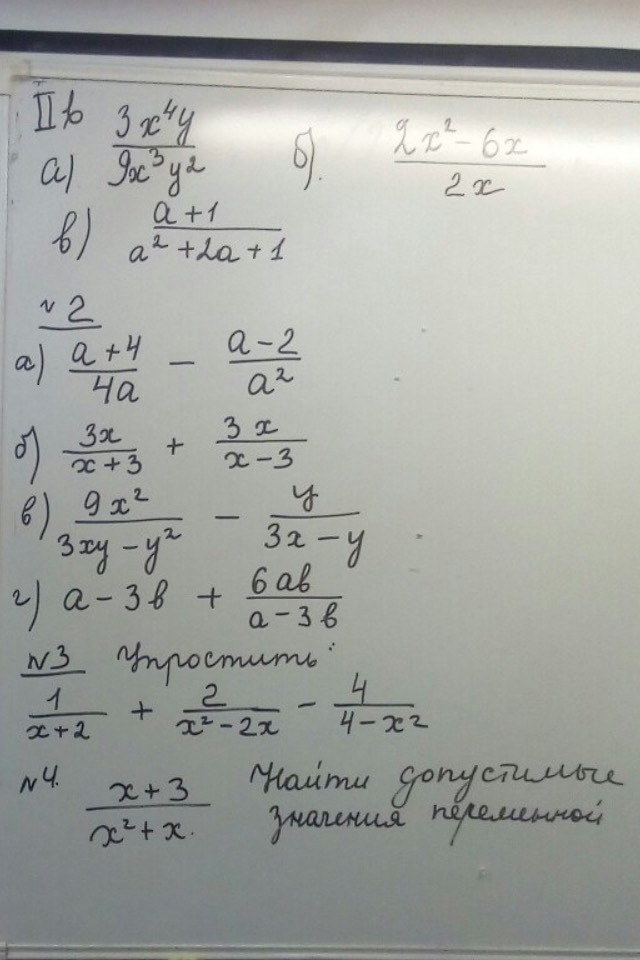 IIв
а) 3x⁴y / 9x³y² б). 2x² - 6x / 2x
в) a + 1 / a² + 2a + 1
№2
а) a + 4 / 4a - a - 2 / a²
б) 3x / x + 3 + 3x / x - 3
в) 9x² / 3xy - y² - y / 3x - y
г) a - 3в + 6aв / a - 3в
№3 Упростить:
1 / x + 2 + 2 / x² - 2x - 4 / 4 - x²
№4. x + 3 / x² + x. Найти допустимые
значения переменной